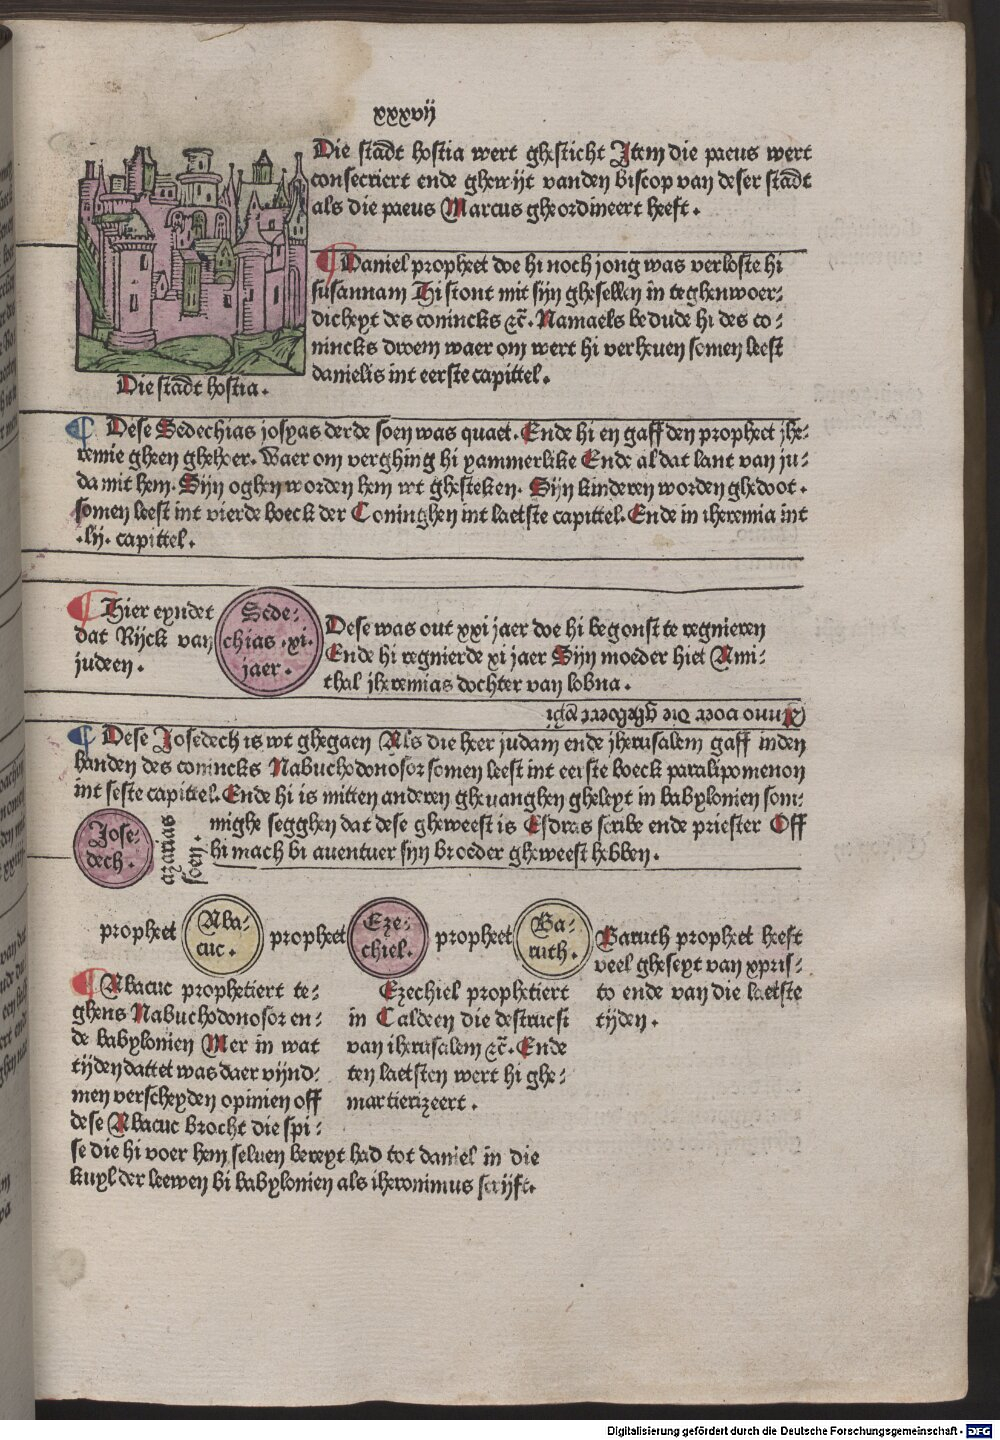 xxxvij
Die stadt hostia wert ghesticht Item die paeus wert
consecriert ende ghewijt vanden biscop van deser stadt
als die paeus Marcus gheordineert heeft.
Die stadt hostia.
Daniel propheet doe hi noch jong was verloste hi
susannam Hi stont mit sijn ghesellen in teghenwoer-
dicheyt des conincks ⁊c̄. Namaels bedude hi des co-
nincks droem waer om wert hi verheuen somen leest
danielis int eerste capittel.
Dese Sedechias josyas derde soen was quaet. Ende hi en gaff den propheet jhe-
remie gheen ghehoer. Waer om verghing hi yammerlike Ende al dat lant van ju-
da mit hem. Sijn oghen worden hem wt ghesteken. Sijn kinderen worden ghedoot.
somen leest int vierde boeck der Coninghen int laetste capittel. Ende in iheremia int
.lij. capittel.
Hier eyndet
dat Rijck van
judeen.
Sede-
chias .xi.
jaer.
Dese was out xxi jaer doe hi begonste te regnieren
Ende hi regnierde xi jaer Sijn moeder hiet Ami-
thal jheremias dochter van lobna.
Anno voer die gheboert xpi
Dese Josedech is wt ghegaen Als die heer judam ende jherusalem gaff inden
handen des conincks Nabuchodonosor somen leest int eerste boeck paralipomenon
int seste capittel. Ende hi is mitten anderen gheuanghen gheleyt in babylonien som-
mighe segghen dat dese gheweest is Esdras scribe ende priester Off
hi mach bi auentuer sijn broeder gheweest hebben.
Jose-
dech.
azarias
soen.
propheet
Aba-
cuc.
propheet
Eze-
chiel.
propheet
Ba-
ruth.
Abacuc prophetiert te-
ghens Nabuchodonosor en-
de babylonien Mer in wat
tijden dattet was daer vijnd-
men verscheyden opinien off
dese Abacuc brocht die spi-
se die hi voer hem seluen bereyt had tot daniel in die
kuyl der leewen bi babylonien als iheronimus scrijft.
Ezechiel prophetiert
in Caldeen die destrucsi
van iherusalem ⁊c̄. Ende
ten laetsten wert hi ghe-
martierizeert.
Baruth propheet heeft
veel gheseyt van xpris-
to ende van die laetste
tijden.
Digitalisierung gefördert durch die Deutsche Forschungsgemeinschaft - DFG